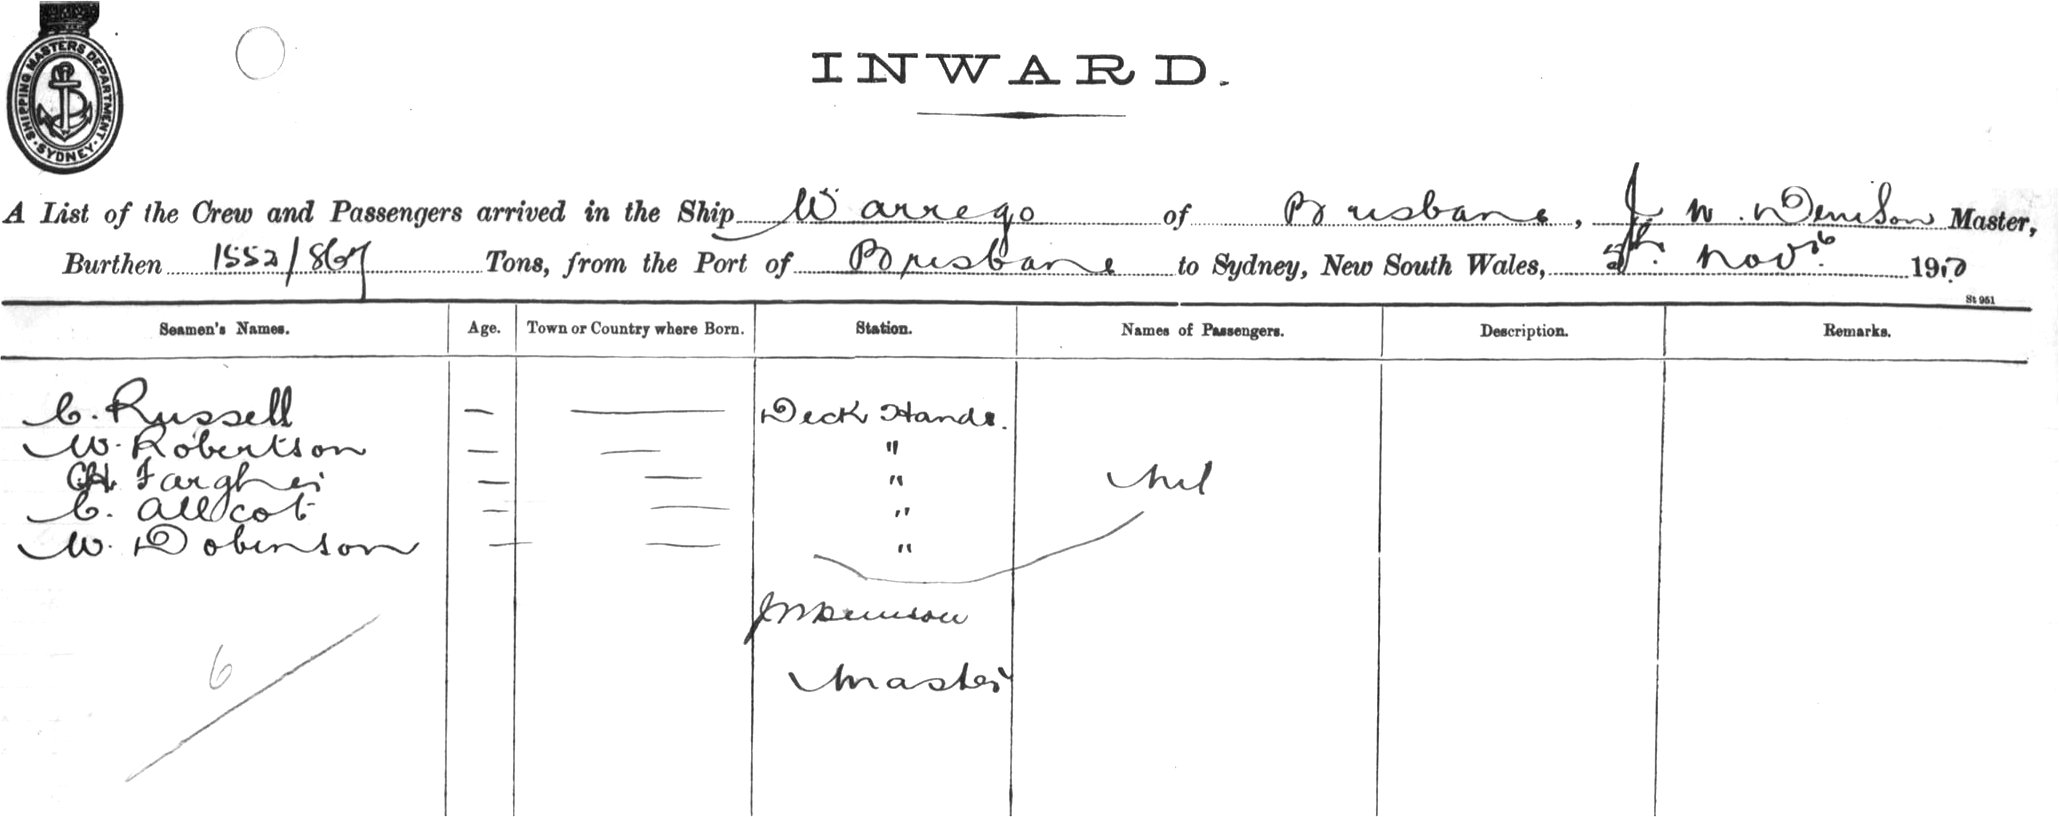 SHIPPING MASTERS DEPARTMENT
SYDNEY
INWARD.
A List of the Crew and Passengers arrived in the Ship Warrego of Brisbane, J. W. Denison Master,
Burthen 1552/867 Tons, from the Port of Brisbane to Sydney, New South Wales, Novb. 1910
St 951
Seamen's Names. Age. Town or Country where Born. Station. Names of Passengers. Description. Remarks.
C. Russell — — Deck Hands.
W. Robertson — — "
CH. — — " Nil
C. Allcot — — "
W. Dobinson — — "
JW Denison
6
Master